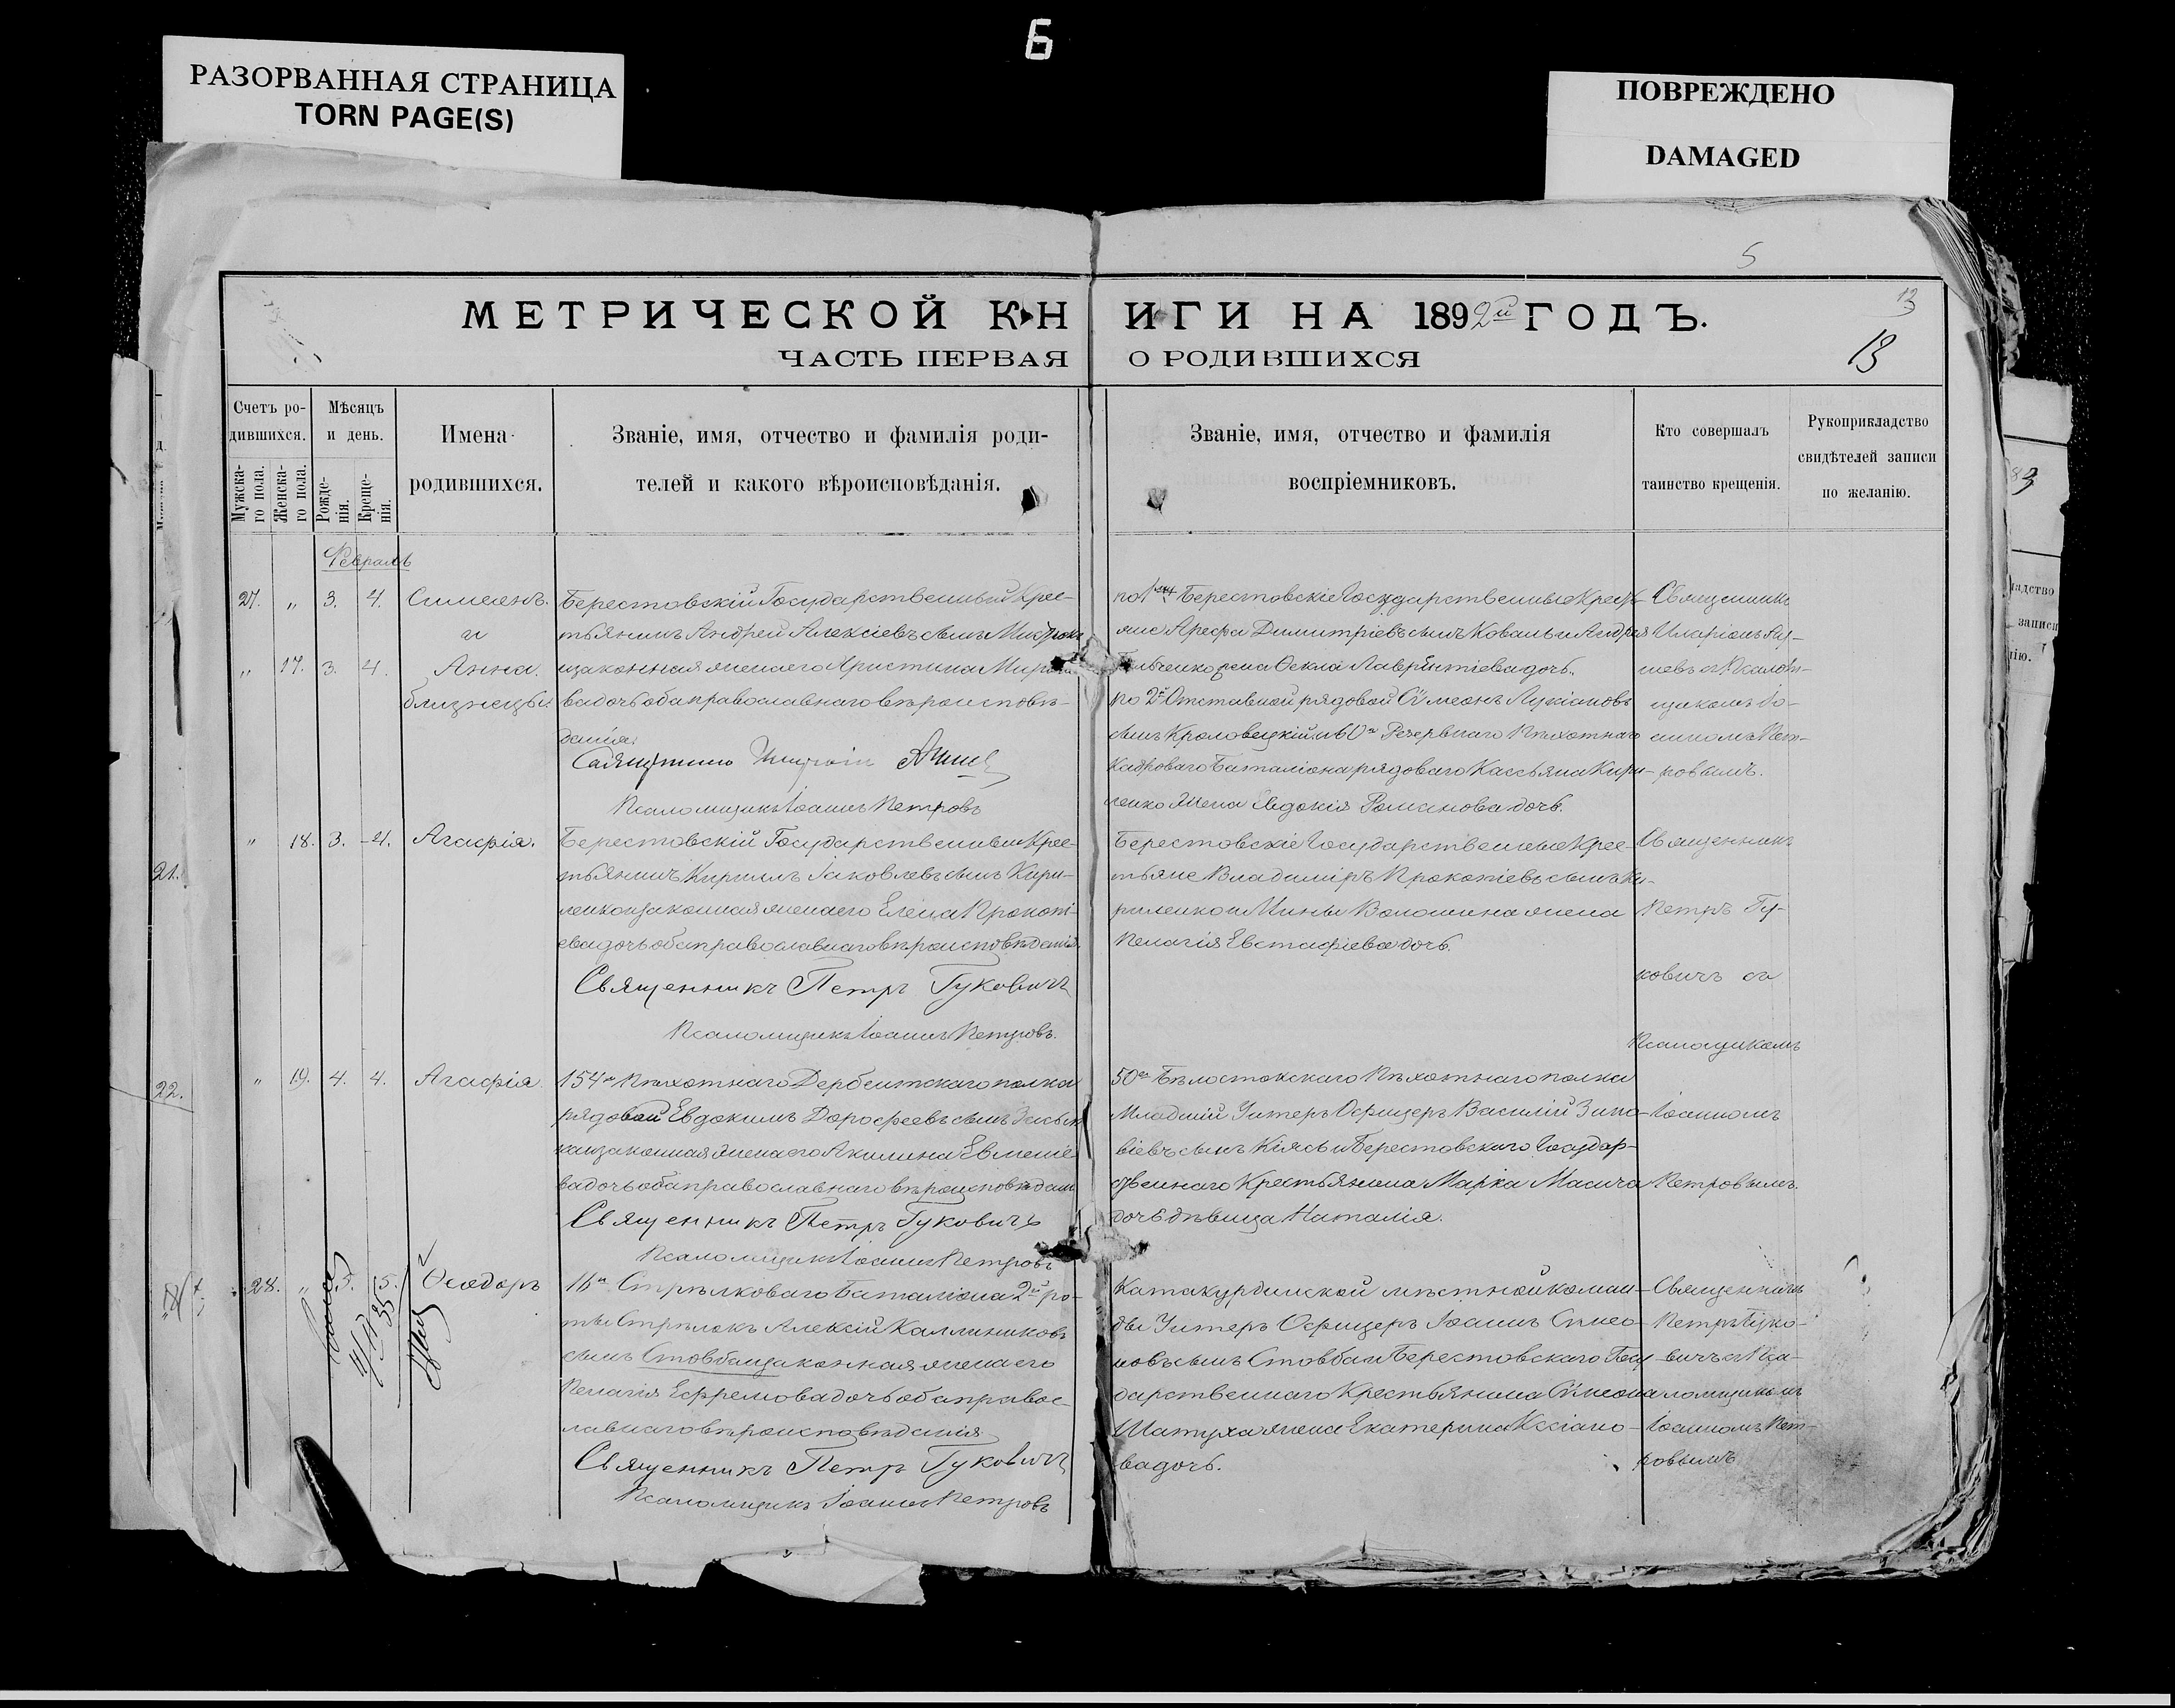 Б
РАЗОРВАННАЯ СТРАНИЦА
TORN PAGE(S)
ПОВРЕЖДЕНО
DAMAGED
5
МЕТРИЧЕСКОЙ КНИГИ НА 1892й ГОДЪ.
13
ЧАСТЬ ПЕРВАЯ О РОДИВШИХСЯ
13
Счетъ ро-
дившихся.
Мужска-
го пола.
Женска-
го пола.
Мѣсяцъ
и день.
Рожде-
нія.
Креще-
нія.
Имена
родившихся.
Званіе, имя, отчество и фамилія роди-
телей и какого вѣроисповѣданія.
Званіе, имя, отчество и фамилія
воспріемниковъ.
Кто совершалъ
таинство крещенія.
Рукоприкладство
свидѣтелей записи
по желанію.
Февраль
27. „ 3. 4. Симеонъ.
и
„ 17. 3. 4. Анна.
близнецы
Берестовскій Государственный Крес-
тьянинъ Андрей Алексіевъ сынъ
и законная жена его Христина
ва дочь оба православнаго вѣроисповѣ-
данія.
Священникъ
Псаломщикъ Іоаннъ Петровъ
по 1му Берестовскіе Государственные Кресть-
яне Арефа Димитріевъ сынъ Коваль и Андрея
жена Ѳекла Лаврентіева дочь.
по 2й Отставной рядовой Симеонъ Лукіановъ
сынъ Кроловецкій и Резервнаго Пѣхотнаго
Кадроваго Баталіона рядоваго Кассьяна Кири-
ленко жена Евдокія Романова дочь.
Священникъ
Иларіонъ
съ Псалом-
щикомъ Іо-
анномъ Пет-
ровымъ.
„ 18. 3. 4. Агафія.
Берестовскій Государственный Крес-
тьянинъ Кириллъ Іаковлевъ сынъ Кири-
ленко и законная жена его Елена Прокопі-
ева дочь оба православнаго вѣроисповѣданія.
Священникъ Петръ Гуковичъ
Псаломщикъ Іоаннъ Петровъ.
Берестовскіе Государственные Крес-
тьяне Владиміръ Прокопіевъ сынъ Ки-
риленко и Мины Волошина жена
Пелагія Евстафіева дочь.
Священникъ
Петръ Гу-
ковичъ съ
Псаломщикомъ
21.
22.
„ 19. 4. 4. Агафія.
154го Пѣхотнаго Дербентскаго полка
рядовой Евдокимъ Дорофеевъ сынъ
и законная жена его Акилина Евменіе
ва дочь оба православнаго вѣроисповѣдан
Священникъ Петръ Гуковичъ
Псаломщикъ Іоаннъ Петровъ
50го Бѣлостокскаго Пѣхотнаго полка
Младшій Унтеръ Офицеръ Василій Зино-
віевъ сынъ и Берестовскаго Государ-
ственнаго Крестьянина Марка
дочь дѣвица Наталія.
Іоанномъ
Петровымъ.
28. „ 5. 5. Ѳеодоръ
16го Стрѣлковаго Баталіона 2й ро-
ты Стрѣлокъ Алексій Каллиниковъ
сынъ Стовба и законная жена его
Пелагія Ефремова дочь оба правос-
лавнаго вѣроисповѣданія
Священникъ Петръ Гуковичъ
Псаломщикъ Іоаннъ Петровъ
Катакурдинской мѣстной коман-
ды Унтеръ Офицеръ Іоаннъ Симео-
новъ сынъ Стовба и Берестовскаго Госу-
дарственнаго Крестьянина Симеона
Шатуха жена Екатерина
ва дочь.
Священникъ
Петръ Гуко-
вичъ съ Пса-
ломщикомъ
Іоанномъ Пет-
ровымъ